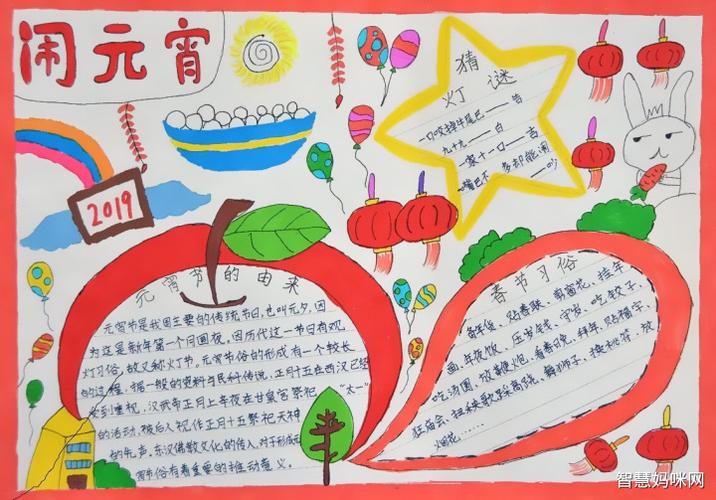 闹元宵
2019
猜
灯谜
一口咬掉牛尾巴——告
九十九——白
一家十一口——吉
嘴巴不多却能闹——吵
元宵节的由来
元宵节是我国主要的传统节日,也叫元夕,因
为这是新年第一个月圆夜。因历代这一节日有观
灯习俗,故又称灯节。元宵节俗的形成有一个较长
的过程,据一般的资料与民俗传说,正月十五在西汉已经
受到重视,汉武帝正月上午夜在甘泉宫祭祀“太一”
的活动,被后人视作正月十五祭祀天神
的先声。东汉佛教文化的传入,对于形成元
宵节俗有着重要的推动意义。
春节习俗
备年货、贴春联、剪窗花、挂年
画、年夜饭、压岁钱、守岁、吃饺子、
吃汤圆、放鞭炮、看春晚、拜年、贴福字、
逛庙会、扭秧歌、踩高跷、舞狮子、换桃符、放
烟花……
智慧妈咪网